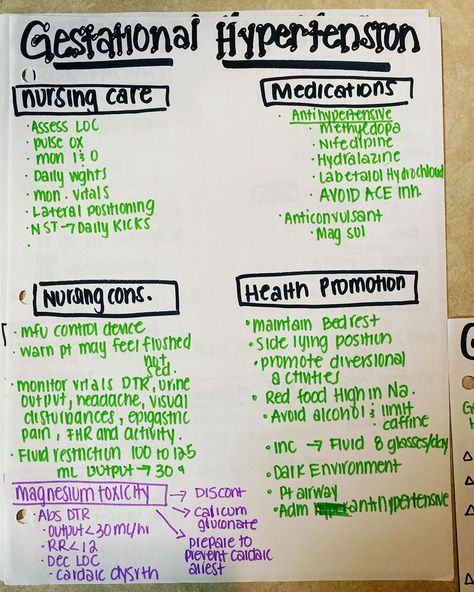 Gestational Hypertension
Nursing care
Assess LOC
pulse ox
mon I & O
Daily wghts
mon. vitals
Lateral positioning
NST → Daily KICKS
Medications
Antihypertensive
Methyldopa
Nifedipine
Hydralazine
Labetalol Hydrochloud
AVOID ACE Inh.
Anticonvulsant
Mag sul
Nursing cons.
mfu control device
warn pt may feel flushed
hot
sed.
monitor vitals DTR, urine
output, headache, visual
disturbances, epigastric
pain, FHR and activity.
Fluid restriction 100 to 125
mL output → 30
Magnesium toxicity
→ Discont
→ calicum
gluconate
→ prepare to
prevent cardaic
arrest
Abs DTR
output < 30 mL/hr
RR < 12
Dec LOC
cardaic dysrth
Health Promotion
maintain Bedrest
Side lying position
promote diversional
activities
Red food High in Na.
Avoid alcohol & limit
caffine
inc → Fluid 8 glasses/day
Dark Environment
Pt airway
Adm antihypertensive